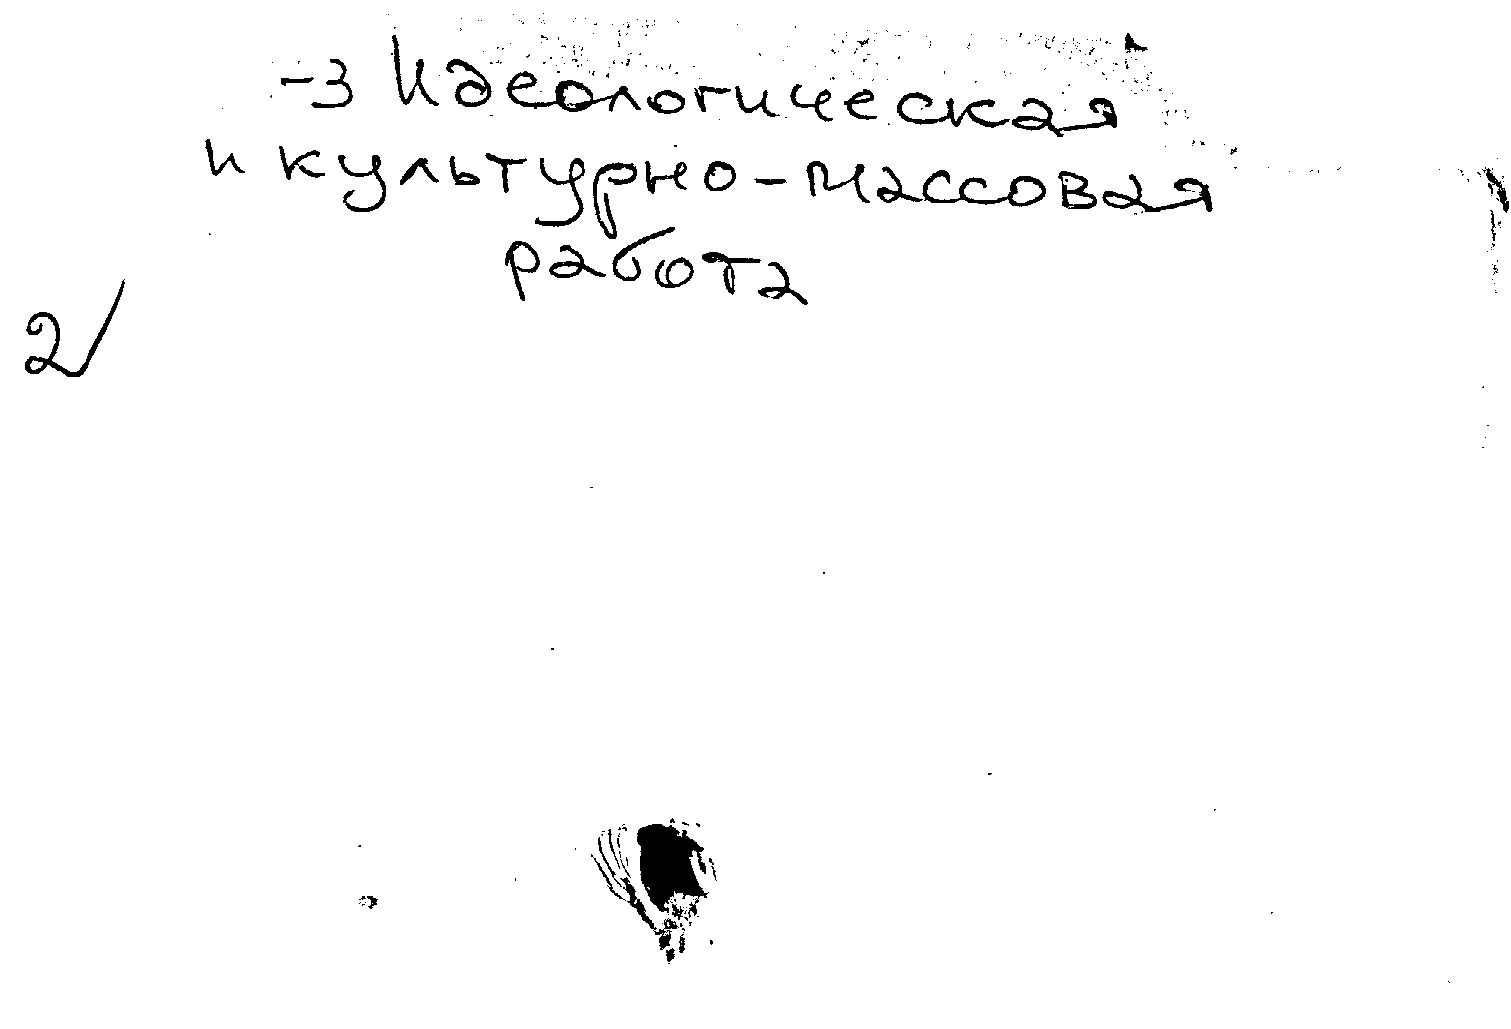 -3 Идеологическая
и культурно-массовая
работа
2/